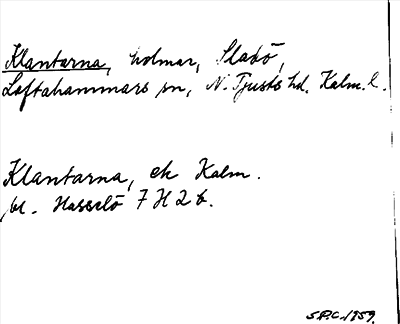 Klantarna, holmar, Slabö,
Loftahammars sn, N. Tjusts hd. Kalm. l.
Klantarna, ek Kalm.
bl. Hasselö 7 H 2 b.
S.P.C. 1959.